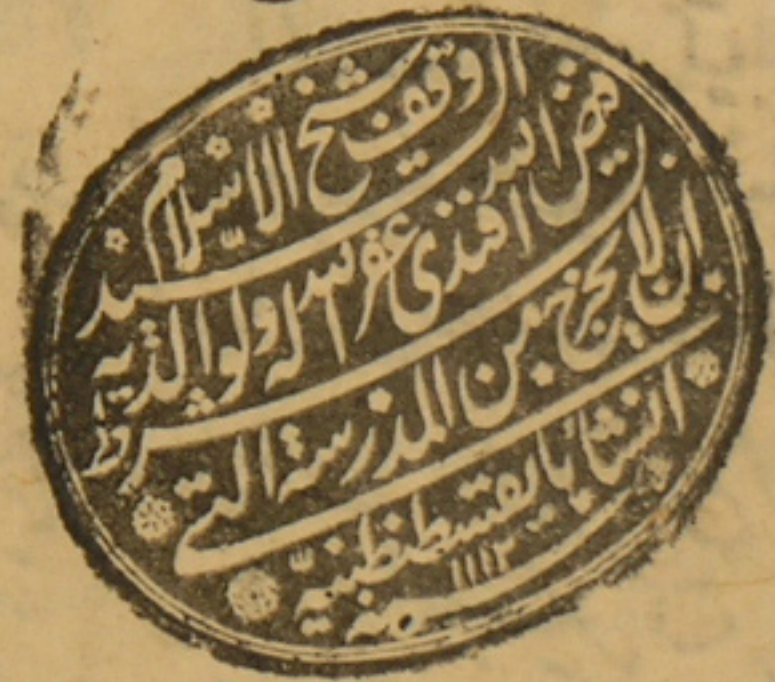 وقف شيخ الاسلام
السيد فيض الله افندى غفر الله له ولوالديه
بشرط ان لا يخرج من المدرسة التى
انشاها بقسطنطنيّة
سنه ١١١٣